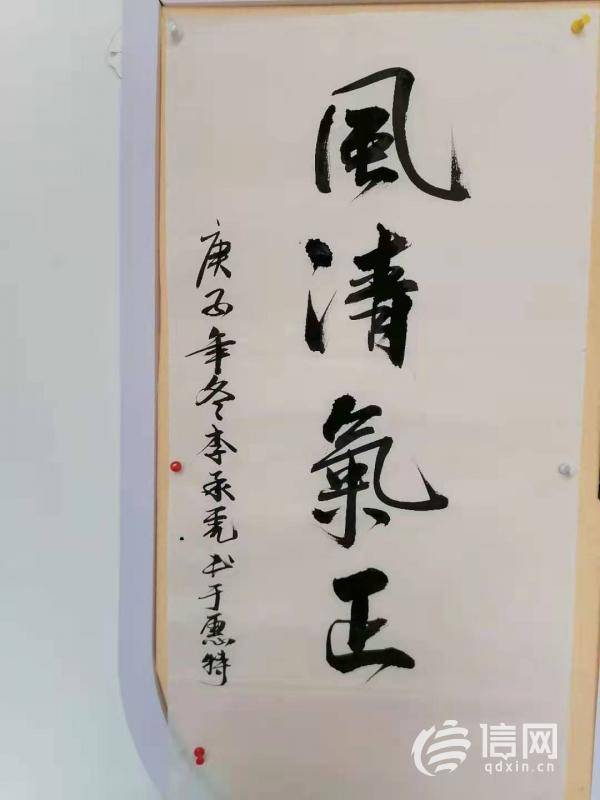 風清氣正
庚子年冬李承亮书于惠特
信网
qdxin.cn